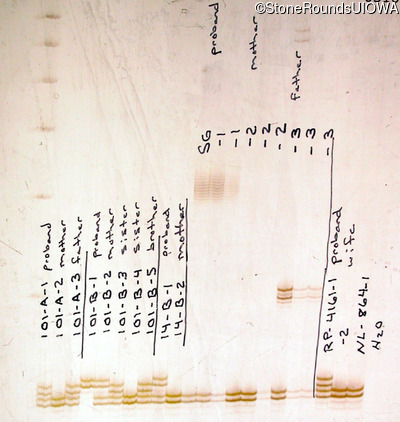 ©StoneRoundsUIOWA
101-A-1 proband
101-A-2 mother
101-A-3 father
101-B-1 proband
101-B-2 mother
101-B-3 sister
101-B-4 sister
101-B-5 brother
14-B-1 proband
14-B-2 mother
SG
-1 proband
-1
-2 mother
-2
-2
-3 father
-3
-3
RP-4161-1 proband
-2 wife
NL-864-1
H20